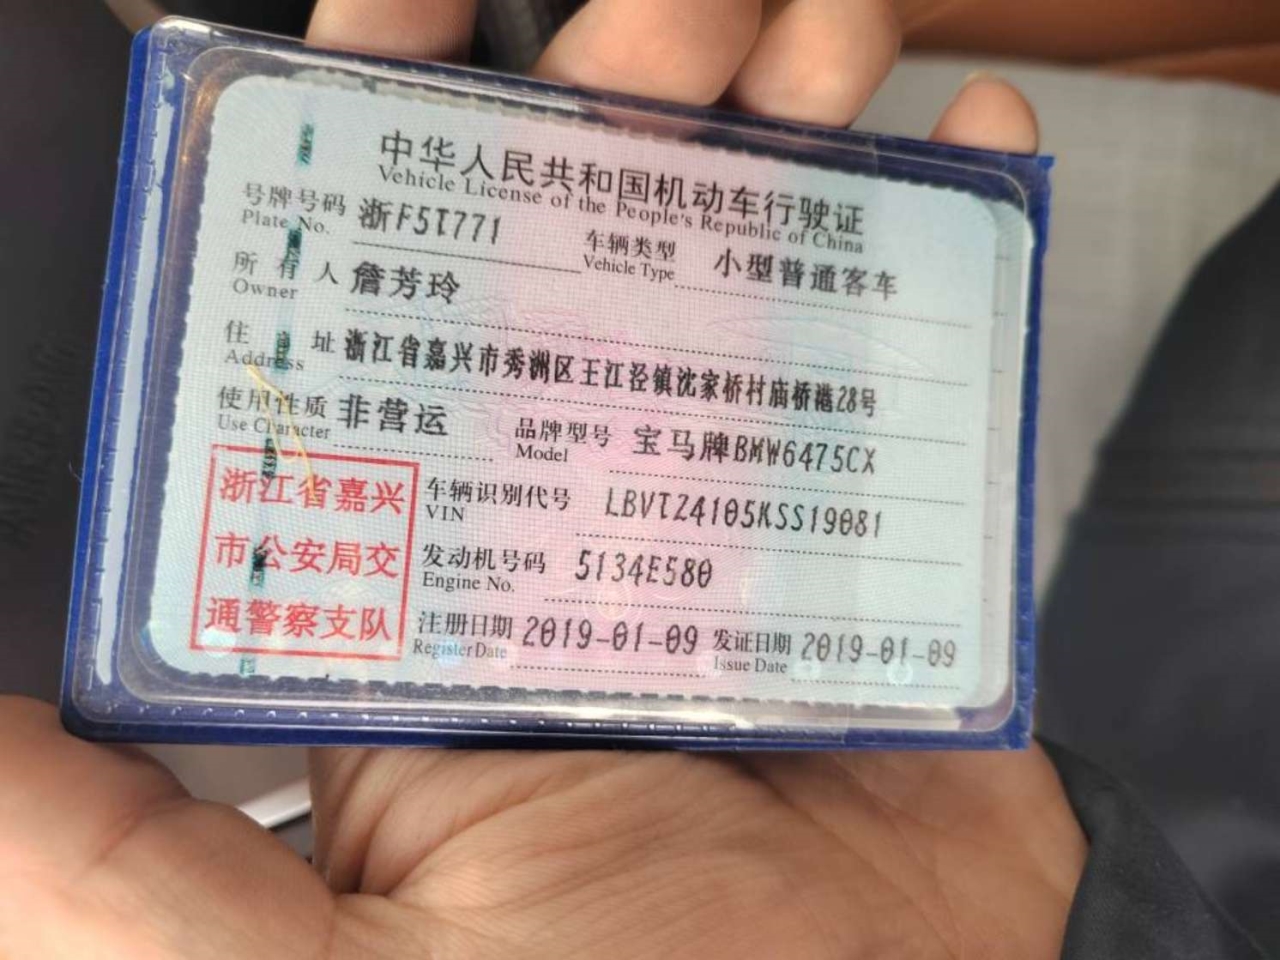 中华人民共和国机动车行驶证
Vehicle License of the People's Republic of China
号牌号码 浙F5T771 车辆类型 小型普通客车
Plate No. Vehicle Type
所有人 詹芳玲
Owner
住址 浙江省嘉兴市秀洲区王江泾镇沈家桥村庙桥港28号
Address
使用性质 非营运 品牌型号 宝马牌BMW6475CX
Use Character Model
浙江省嘉兴
市公安局交
通警察支队
车辆识别代号 LBVTZ4105KSS19081
VIN
发动机号码 5134E580
Engine No.
注册日期 2019-01-09 发证日期 2019-01-09
Register Date Issue Date